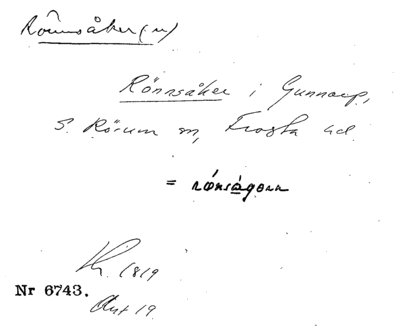 Rönnsåker(n)
Rönnsåker i Gunnarp,
S. Rörum sn, Frosta hd.
= rönsågorn
Kr. 1819
Nr 6743.
Akt 19.